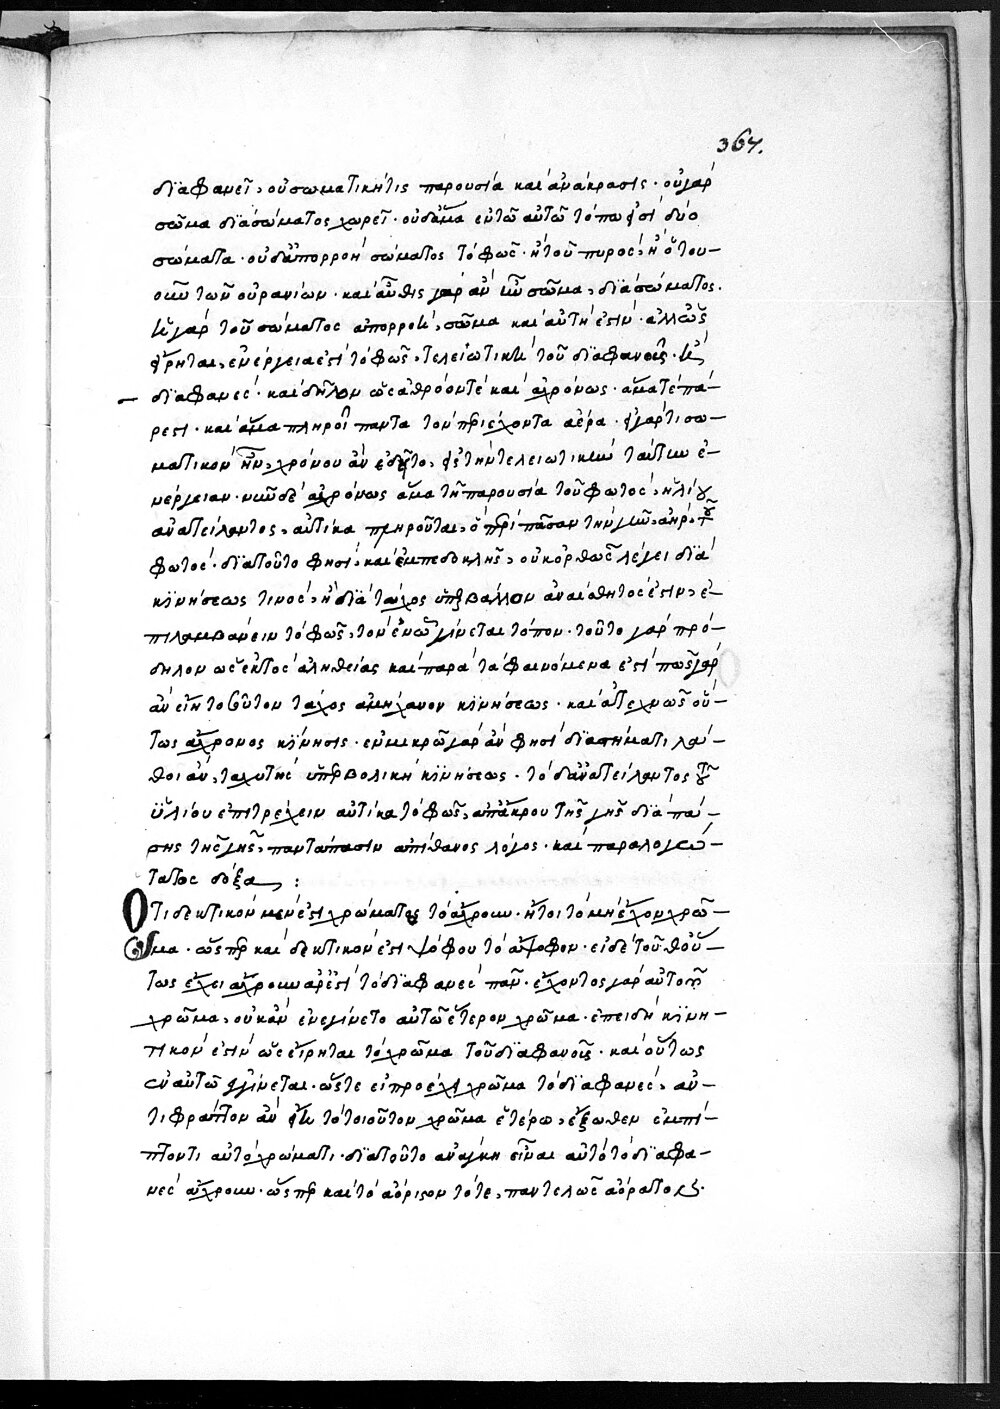 367.
διαφανεῖ, οὐ σωματική τις παρουσία καὶ ἀνάκρασις · οὐ γὰρ
σῶμα διὰ σώματος χωρεῖ · οὐδ' ἅμα ἐν τῶ αὐτῶ τόπω εἰσὶ δύο
σώματα · οὐδ' ἀπορροὴ σώματος τὸ φῶς · ἢ τοῦ πυρὸς, ἢ ὅτου-
οῦν τῶν οὐρανίων · καὶ αὖθις γὰρ ἂν ἦν σῶμα, διὰ σώματος.
ἡ γὰρ τοῦ σώματος ἀπορροὴ, σῶμα καὶ αὐτή ἐστιν · ἀλλ' ὡς
εἴρηται, ἐνέργεια ἐστὶ τὸ φῶς, τελειωτικὴ τοῦ διαφανοῦς · ᾗ
διαφανές · καὶ δῆλον ὡς ἀθρόον τὲ καὶ ἀχρόνως · ἅμα τὲ πά-
ρεστι · καὶ ἅμα πληροῖ πάντα τὸν περιέχοντα ἀέρα · εἰ γάρ τι σω-
ματικὸν ἦν, χρόνου ἂν ἐδεῖτο, εἰς τὴν τελειωτικὴν ταύτην ἐ-
νέργειαν · νῦν δὲ ἀχρόνως ἅμα τῆ παρουσία τοῦ φωτὸς, ἡλίου
ἀνατείλαντος, αὐτίκα πληροῦται, ὁ περὶ πᾶσαν τὴν γῆν, ἀὴρ, τοῦ
φωτὸς · διατοῦτο φησὶ, καὶ ἐμπεδοκλῆς, οὐκ ὀρθῶς λέγει διὰ
κινήσεως τινὸς, ἢ διὰ τάχος ὑπερβάλλον ἀναίσθητός ἐστιν, ἐ-
πιλαμβάνειν τὸ φῶς, τὸν ἐν ὧ γίνεται τόπον · τοῦτο γὰρ πρό-
δηλον ὡς ἐκτὸς ἀληθείας καὶ παρὰ τὰ φαινόμενα ἐστί πῶς γὰρ
ἂν εἴη τοσοῦτον τάχος ἀμήχανον κινήσεως · καὶ ἀτεχνῶς οὕ-
τως ἄχρονος κίνησις · ἐν μικρῶ γὰρ ἂν φησὶ διαστήματι λάθοι
θοι ἂν, ταχυτὴς ὑπερβολικὴ κινήσεως · τὸ δ' ἀνατείλαντος τοῦ
ἡλίου ἐπιτρέχειν αὐτίκα τὸ φῶς, ἀπ' ἄκρου τῆς γῆς διὰ πά-
σης τῆς γῆς, παντάπασιν ἀπίθανος λόγος · καὶ παραλογω-
τάτος δόξα :
Ὅτι δεκτικὸν μέν ἐστι χρώματος τὸ ἄχρουν · ἤτοι τὸ μὴ ἔχον χρῶ-
μα · ὥσπερ καὶ δεκτικόν ἐστι ψόφου τὸ ἄψοφον · εἰ δὲ τοῦθ' οὕ-
τως ἔχει ἄχρουν ἄρ' ἐστὶ τὸ διαφανὲς πᾶν · ἔχοντος γὰρ αὐτοῦ
χρῶμα, οὐκ ἂν ἐνεγίνετο αὐτῶ ἕτερον χρῶμα · ἐπειδὴ κινη-
τικόν ἐστιν ὡς εἴρηται τὸ χρῶμα τοῦ διαφανοῦς · καὶ οὕτως
ἐν αὐτῶ ἐγγίνεται · ὥστε εἰ προέχει χρῶμα τὸ διαφανὲς, ἀν-
τιφράττον ἂν ἦν τὸ τοιοῦτον χρῶμα ἑτέρω, ἔξωθεν ἐμπί-
πτοντι αὐτὸ χρώματι · διατοῦτο ἀνάγκη εἶναι αὐτὸ τὸ διαφα-
νὲς ἄχρουν · ὥσπερ καὶ τὸ ἀόριστον τότε, παντελῶς ἀόρατον.